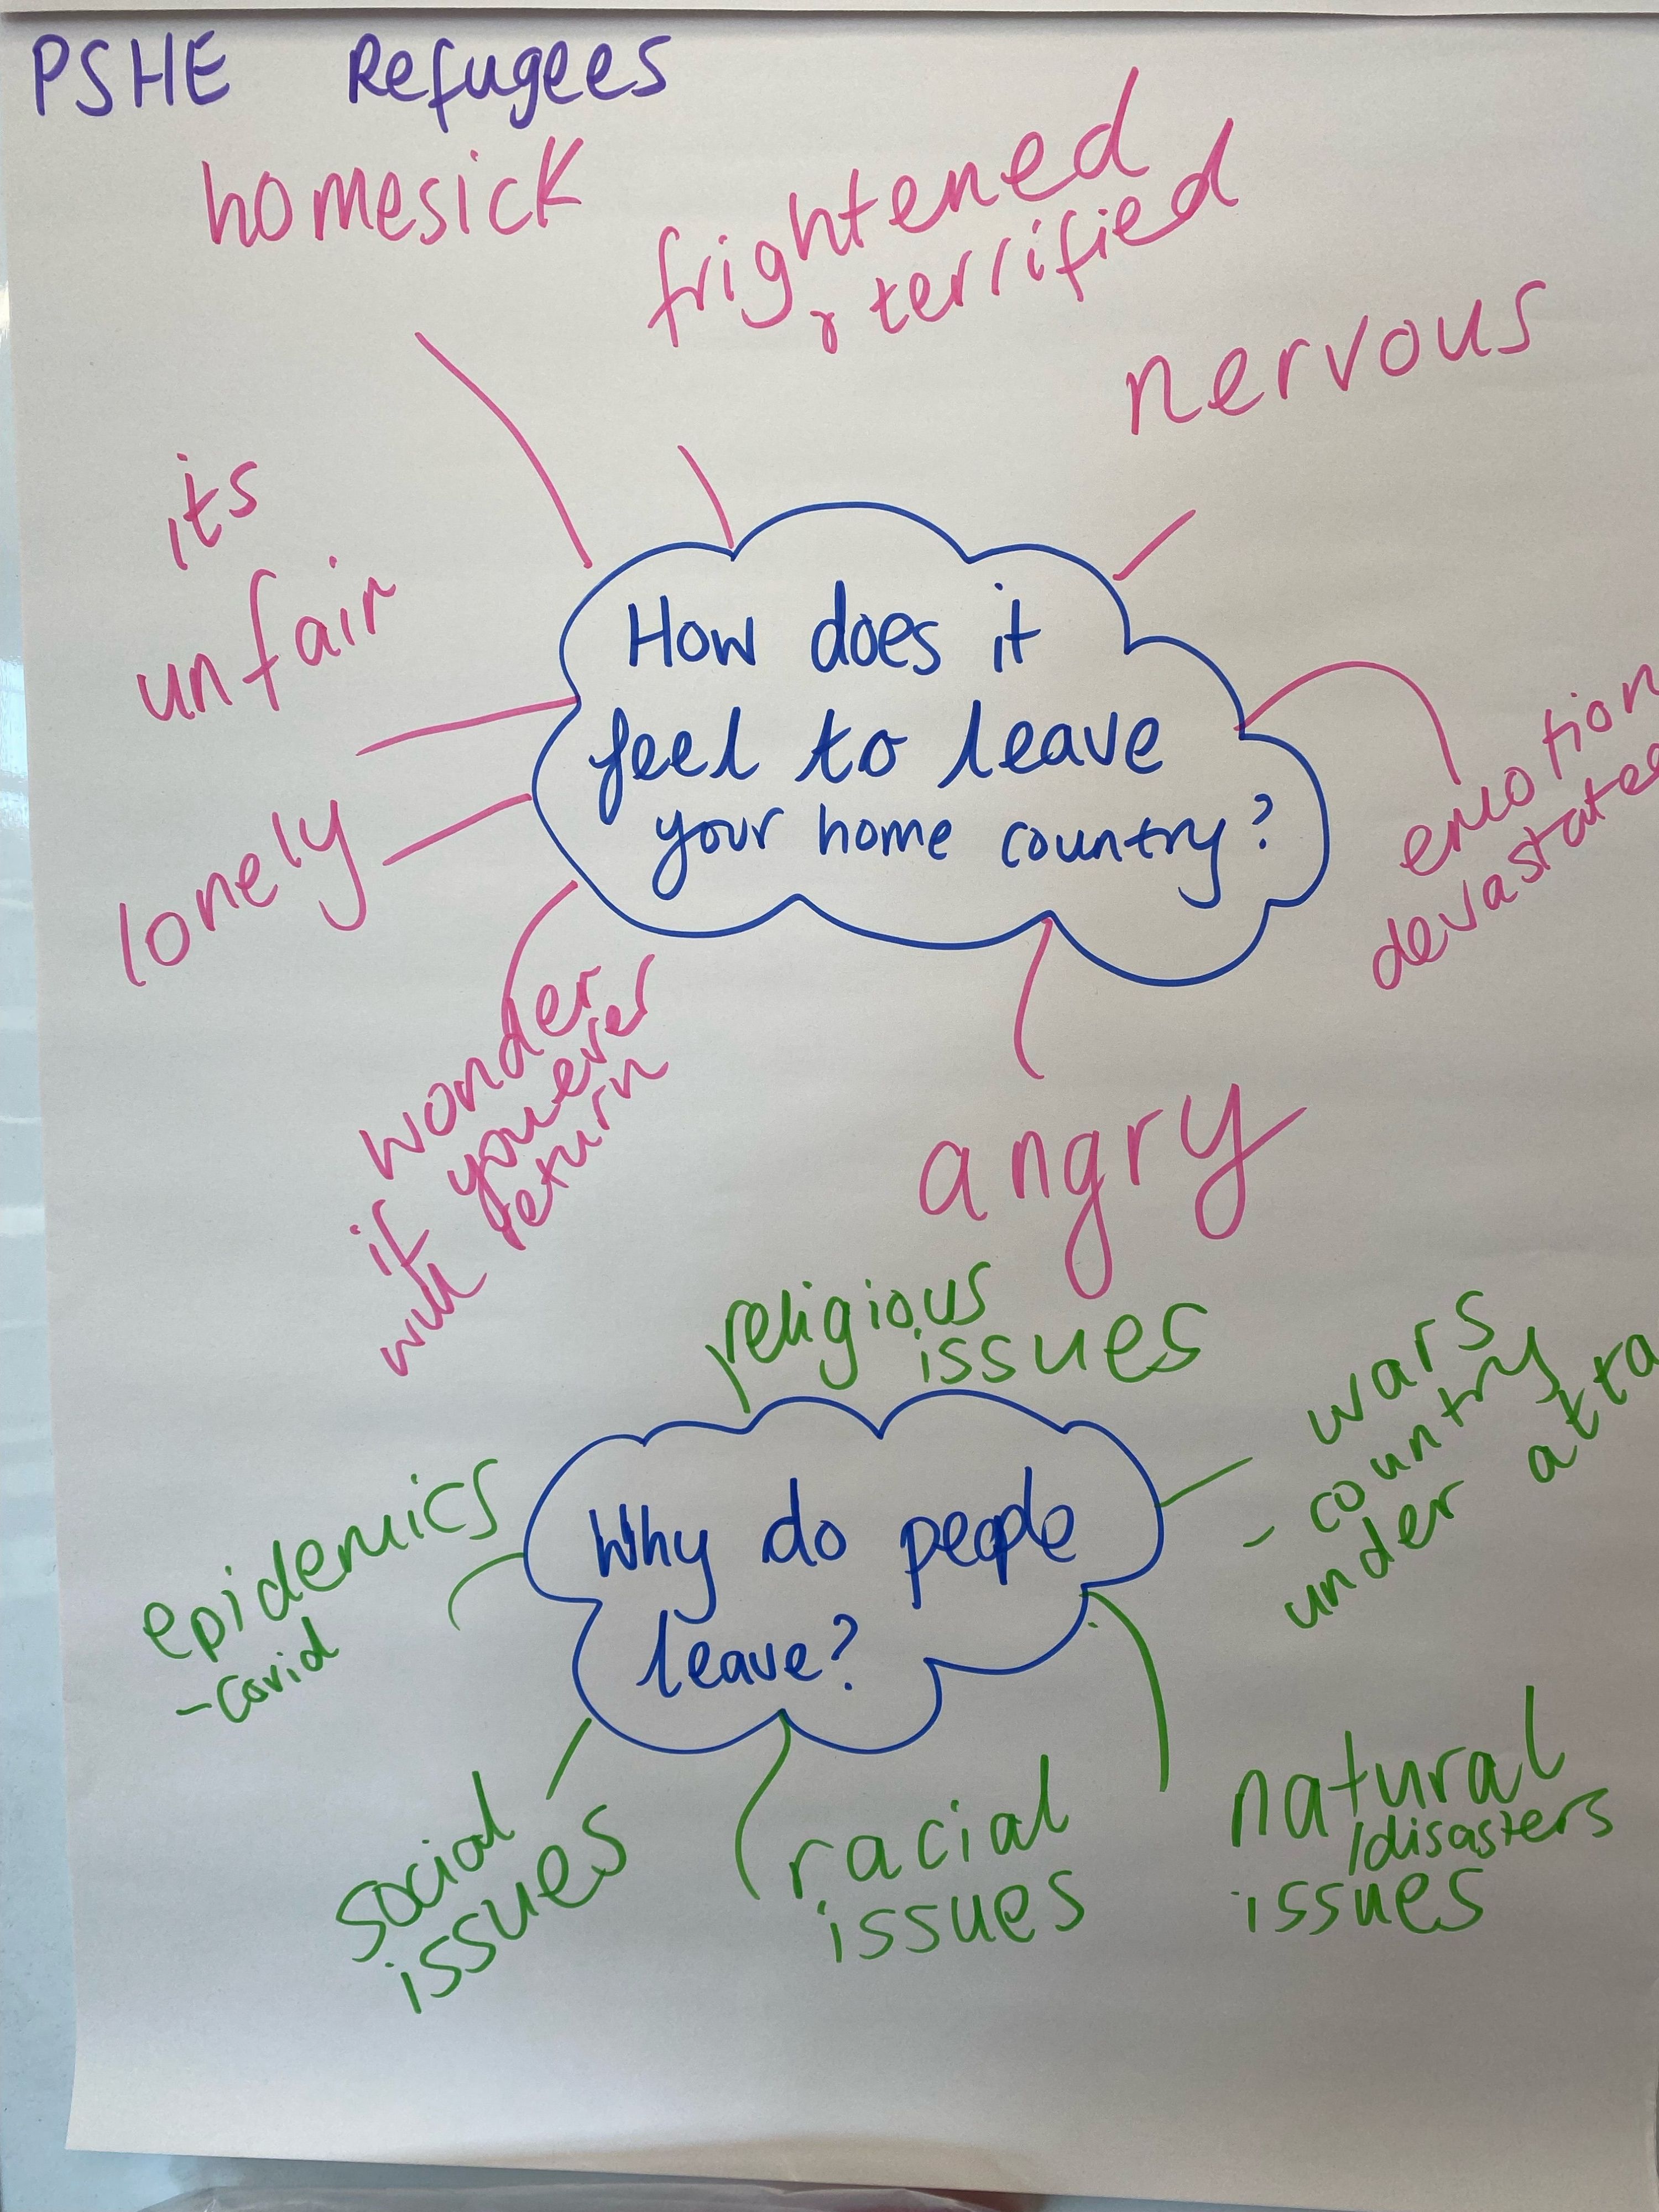 PSHE Refugees
homesick
frightened
& terrified
nervous
its
unfair
How does it
feel to leave
your home country?
emotion
devastate
lonely
wonder
if you ever
will return
angry
religious
issues
wars
- country
under atta
Why do people
leave?
epidemics
- covid
social
issues
racial
issues
natural
/disasters
issues